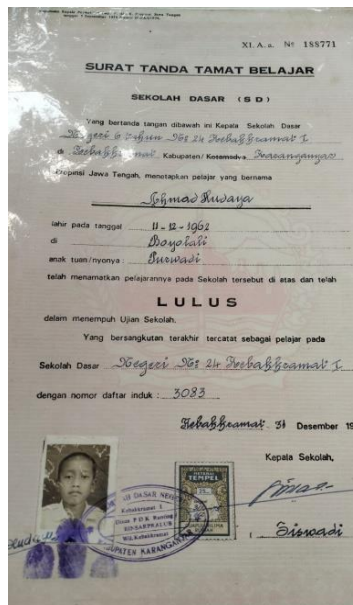 XI. A. a. № 188771
SURAT TANDA TAMAT BELAJAR
SEKOLAH DASAR (SD)
Yang bertanda tangan dibawah ini Kepala Sekolah Dasar
Negeri 6 tahun No: 24 Kebakkramat I
di Kebakkramat, Kabupaten/Kotamadya Karanganyar
Propinsi Jawa Tengah, menetapkan pelajar yang bernama
Achmad Hudaya
lahir pada tanggal 11-12-1962
di Boyolali
anak tuan/nyonya : Purwadi
telah menamatkan pelajarannya pada Sekolah tersebut di atas dan telah
LULUS
dalam menempuh Ujian Sekolah.
Yang bersangkutan terakhir tercatat sebagai pelajar pada
Sekolah Dasar Negeri No: 24 Kebakkramat I
dengan nomor daftar induk : 3083
Kebakkramat, 31 Desember 19
Kepala Sekolah,
METERAI
TEMPEL
SEKOLAH DASAR NEGERI
Kebakkramat I
KABUPATEN KARANGANYAR
Siswadi